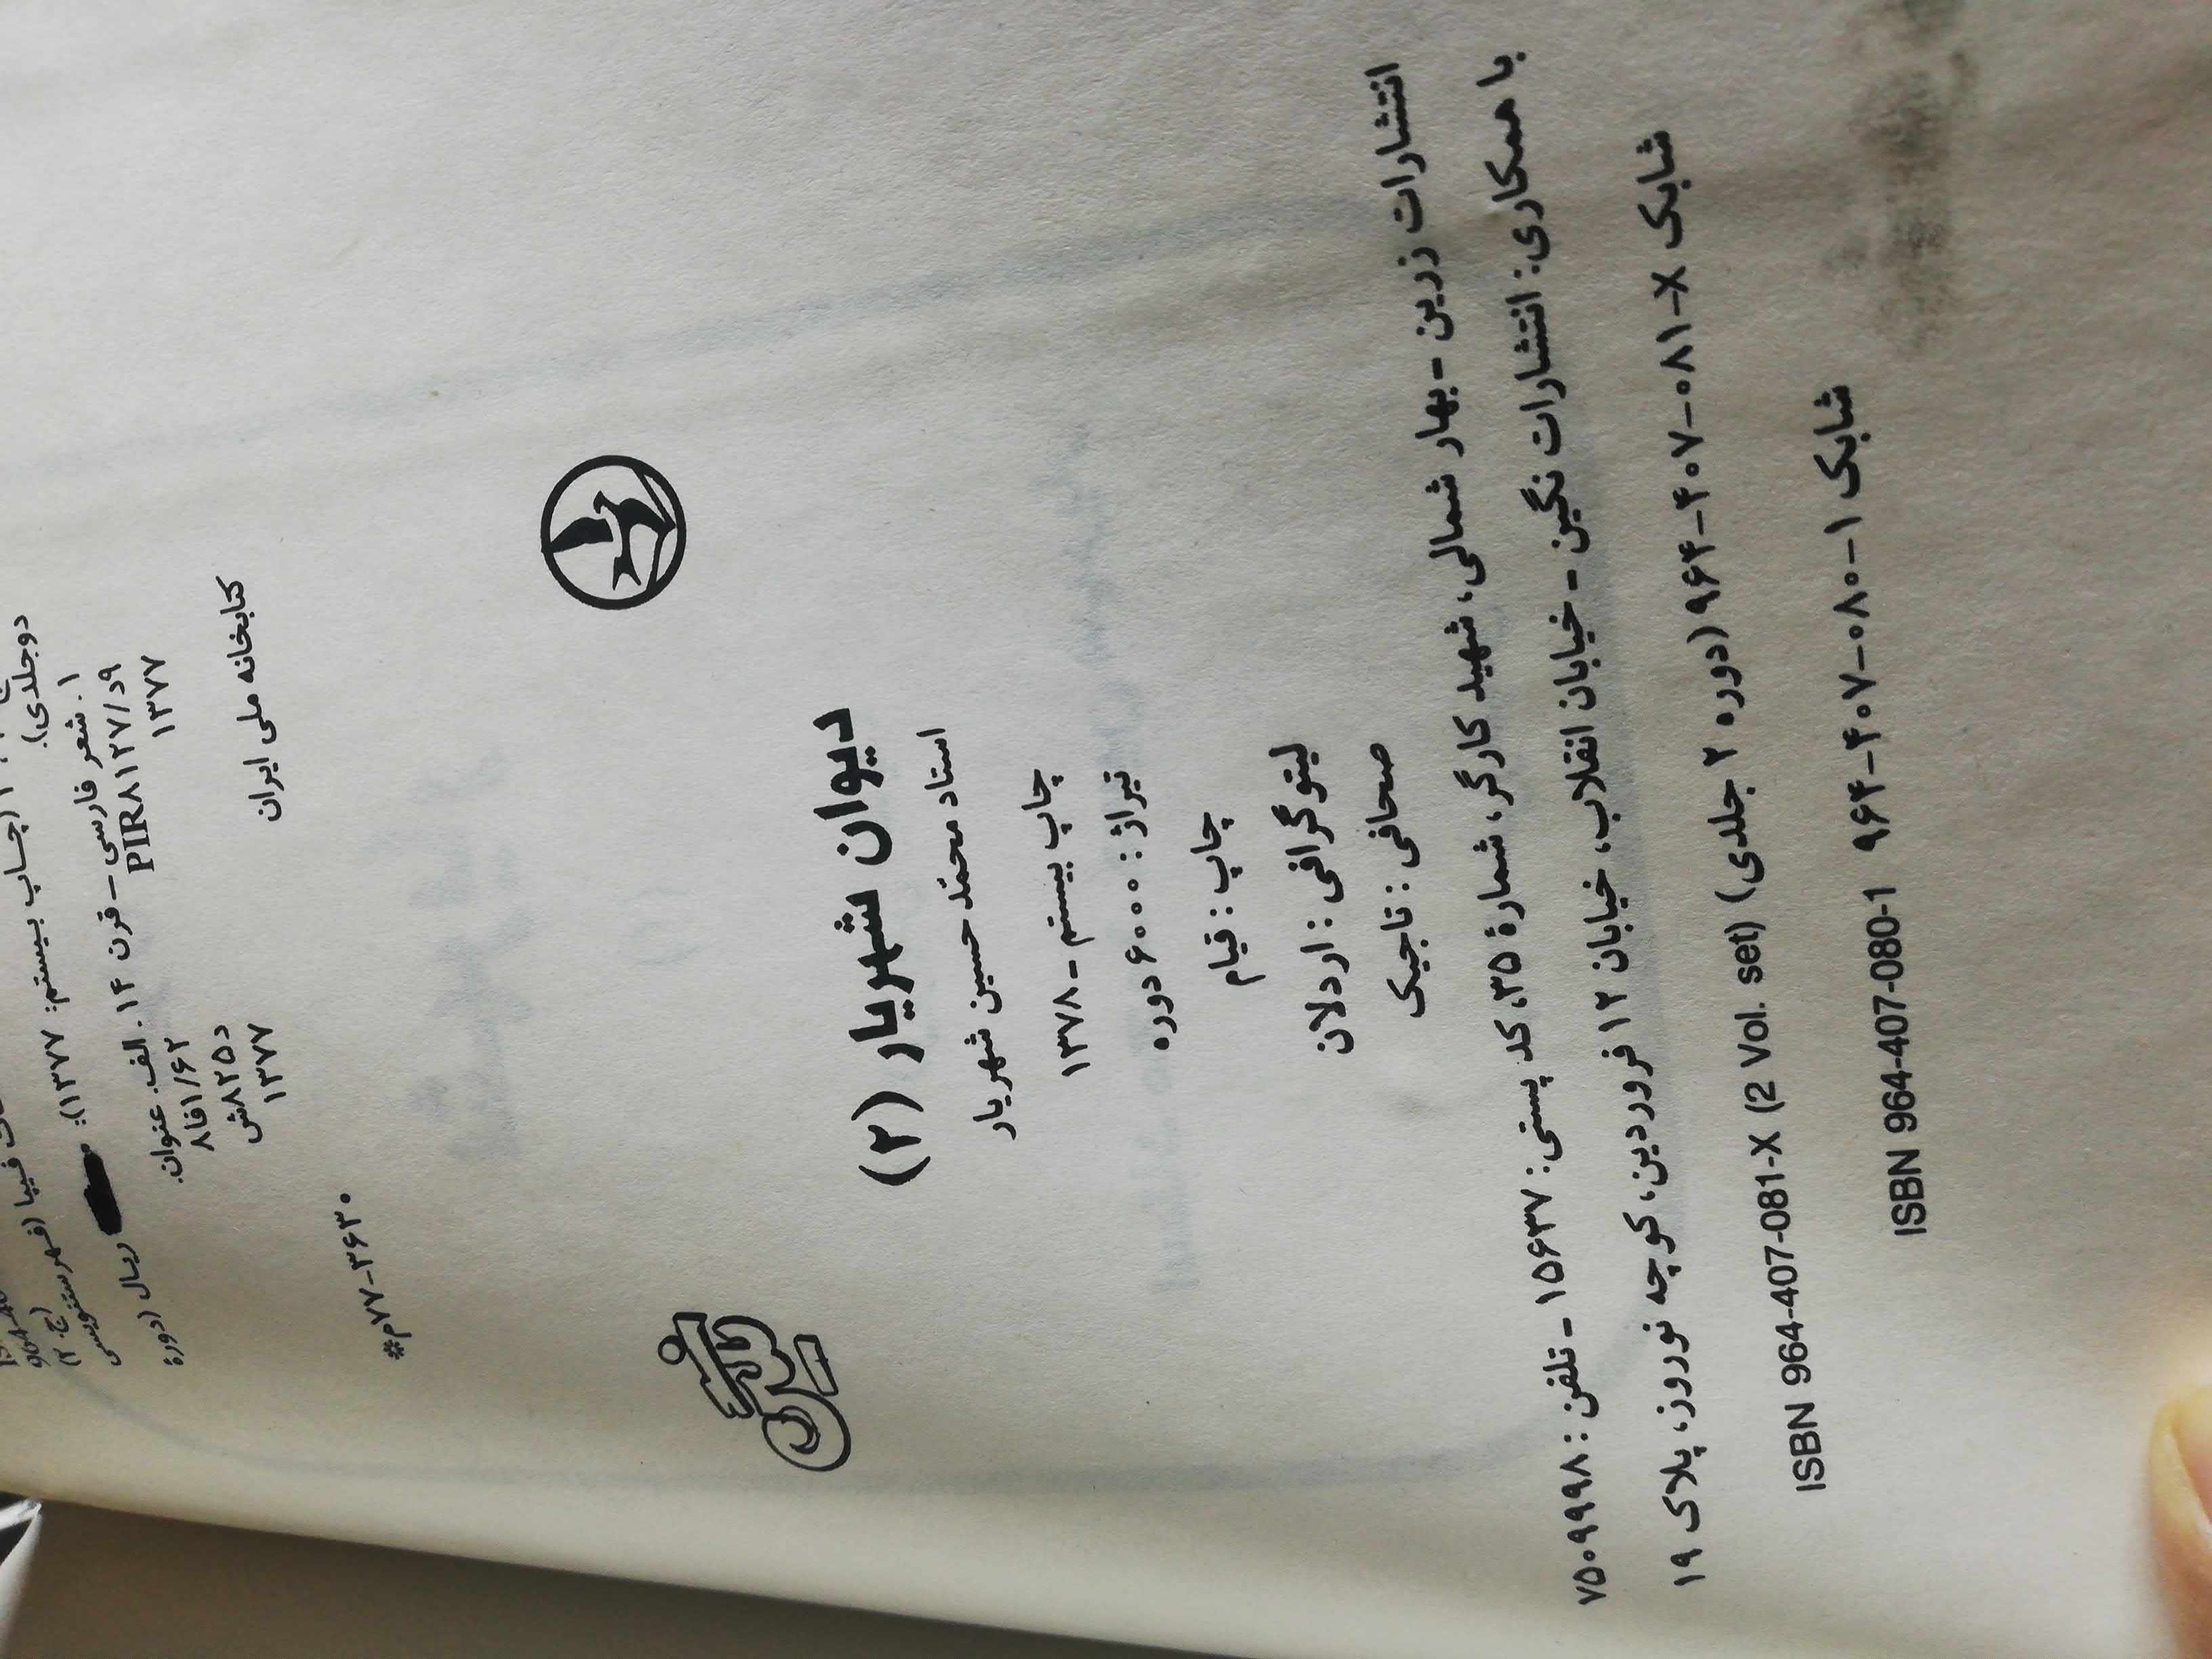 دوجلدی).
(چاپ بیستم: ۱۳۷۷):
ریال (دورهٔ
۱. شعر فارسی - قرن ۱۴. الف. عنوان.
۹د/۸۱۲۷PIR ۸فا۱/۶۲
۱۳۷۷ د۸۲۵ش
۱۳۷۷
کتابخانه ملی ایران ۳۶۳۰-۷۷م*
دیوان شهریار (۲)
استاد محمّد حسین شهریار
چاپ بیستم - ۱۳۷۸
تیراژ: ۶۰۰۰ دوره
چاپ: قیام
لیتوگرافی: اردلان
صحافی: تاجیک
انتشارات زرین - بهار شمالی، شهید کارگر، شمارهٔ ۳۵، کد پستی: ۱۵۶۳۷ - تلفن: ۷۵۰۹۹۹۸
با همکاری: انتشارات نگین - خیابان انقلاب، خیابان ۱۲ فروردین، کوچه نوروز، پلاک ۱۹
شابک ۹۶۴-۴۰۷-۰۸۱-X (دوره ۲ جلدی) ISBN 964-407-081-X (2 Vol. set)
شابک ۹۶۴-۴۰۷-۰۸۰-۱ ISBN 964-407-080-1